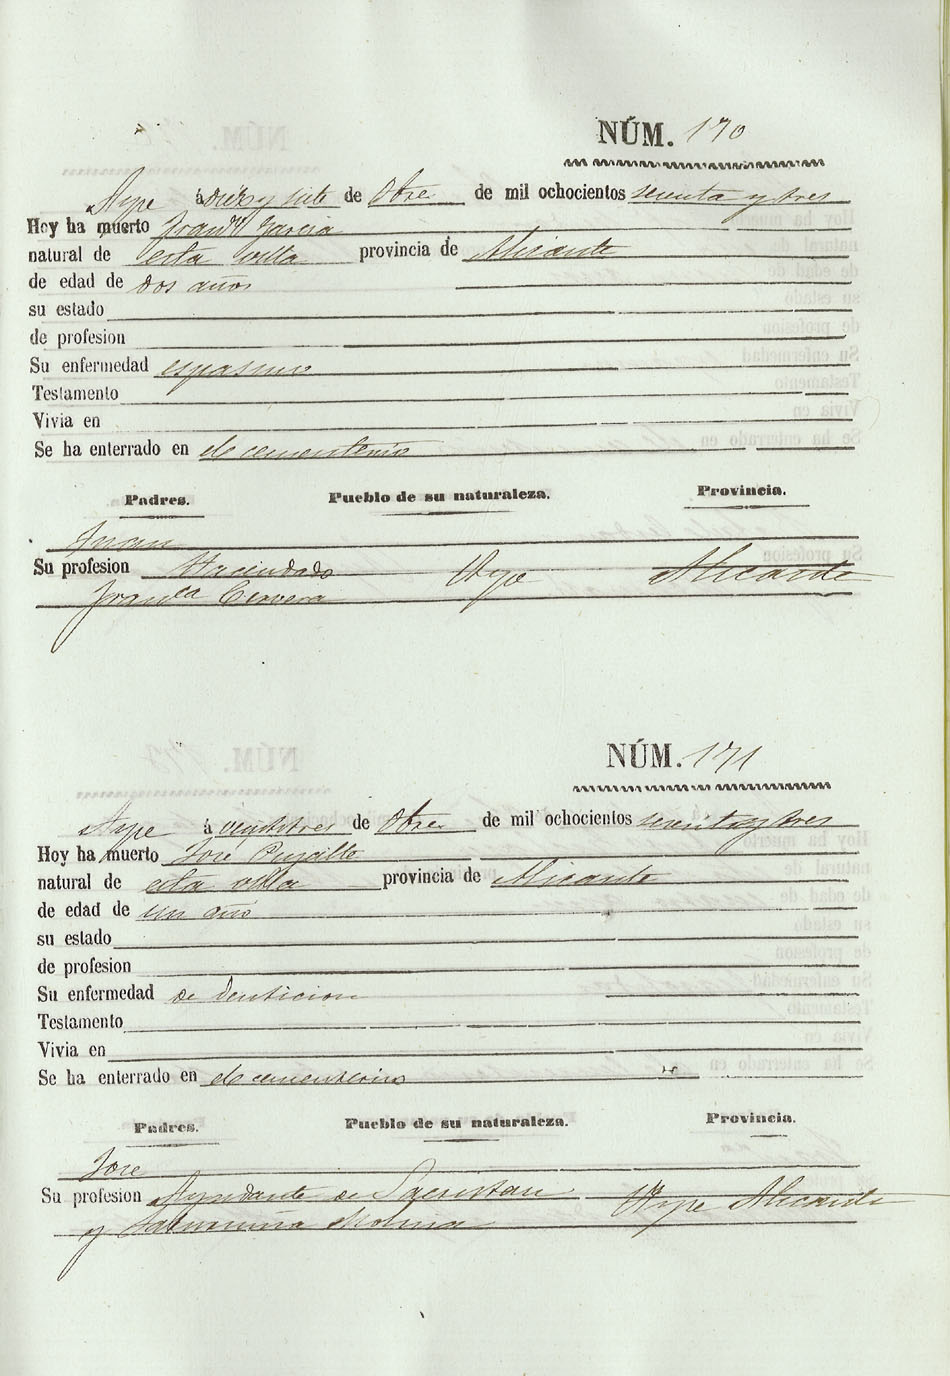 NÚM. 170
Aspe á diez y siete de Obre de mil ochocientos setenta y tres
Hoy ha muerto García
natural de esta villa provincia de Alicante
de edad de dos años
su estado
de profesion
Su enfermedad espasmo
Testamento
Vivia en
Se ha enterrado en el cementerio
Padres. Pueblo de su naturaleza. Provincia.
Juan
Su profesion Haciendado Aspe Alicante
Franca Cervera
NÚM. 171
Aspe á veintitres de Obre de mil ochocientos setenta y tres
Hoy ha muerto José
natural de esta villa provincia de Alicante
de edad de un año
su estado
de profesion
Su enfermedad de denticion
Testamento
Vivia en
Se ha enterrado en el cementerio
Padres. Pueblo de su naturaleza. Provincia.
José
Su profesion Ayudante de Sacristan Aspe Alicante
y Molina